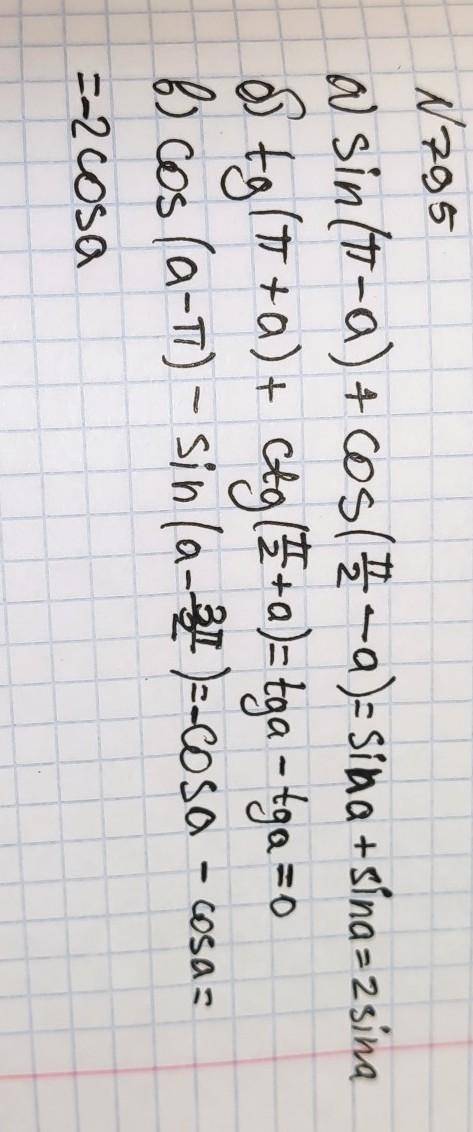 N 795
а) sin(π-a) + cos(π/2 -a)=sina+sina=2sina
б) tg(π+a)+ ctg(π/2+a)=tga-tga=0
в) cos(a-π)- sin(a-3π/2)=-cosa-cosa=
=-2cosa